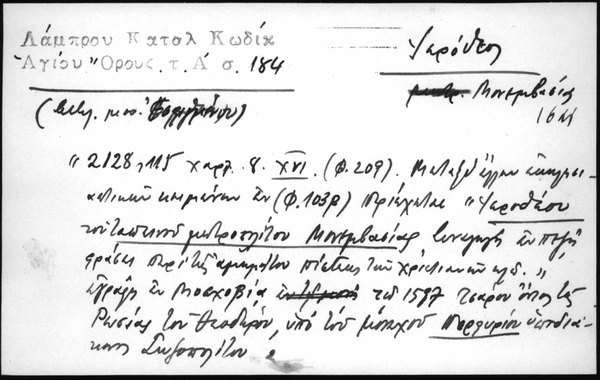 Λάμπρου Κατάλ Κωδίκ
Ἁγίου Ὄρους. τ. Α΄ σ. 184
Ἱερόθεος
Μονεμβασίας
16
"2128, 115 χαρτ. 8. XVI. (Φ. 209). Μεταξὺ ἄλλων ἐκκλησι-
αστικῶν κειμένων ἐν (Φ. 103β) περιέχεται "Ἱεροθέου
τοῦ ταπεινοῦ μητροπολίτου Μονεμβασίας Συναγωγὴ ἐν πεζῇ
φράσει περὶ τῆς ἀμωμήτου πίστεως τῶν χριστιανῶν κλπ.",
ἐγράφη ἐν Μοσχοβίᾳ τῷ 1597 τσάρου ὄντος τῆς
Ρωσίας τοῦ Θεοδώρου, ὑπὸ τοῦ μοναχοῦ Πορφυρίου ὑποδια-
κόνου Σωζοπολίτου.